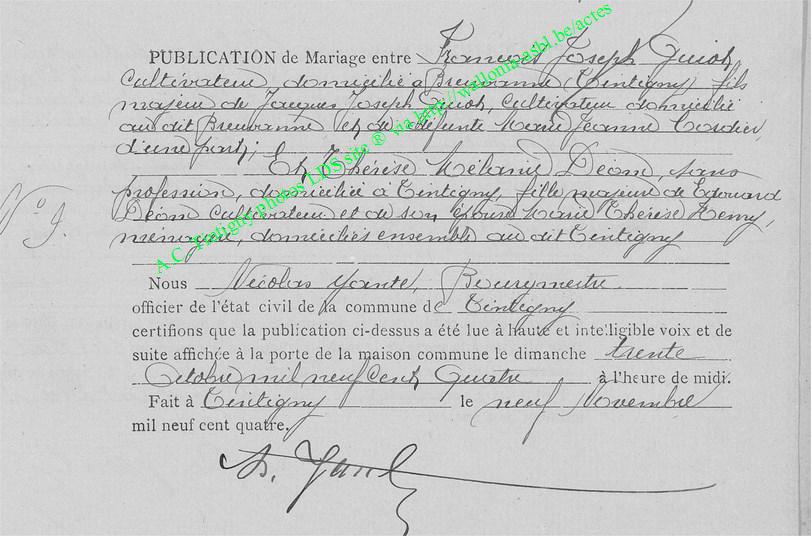 PUBLICATION de Mariage entre François Joseph Guiot
cultivateur domicilié à Breuvanne (Tintigny) fils
majeur de Jacques Joseph Guiot, cultivateur domicilié
au dit Breuvanne et de défunte Marie Jeanne
d'une part;
Et Thérèse Mélanie Déom, sans
profession, domiciliée à Tintigny, fille majeure de Edouard
Déom cultivateur et de son épouse Marie Thérèse Henry,
ménagère, domiciliés ensemble au dit Tintigny
N° 9.
Nous Nicolas Yante, Bourgmestre
officier de l'état civil de la commune de Tintigny
certifions que la publication ci-dessus a été lue à haute et intelligible voix et de
suite affichée à la porte de la maison commune le dimanche trente
Octobre mil neuf cent quatre à l'heure de midi.
Fait à Tintigny le neuf Novembre
mil neuf cent quatre.
A.C. Tintigny photos LDS site ® via http://wallonia-asbl.be/actes